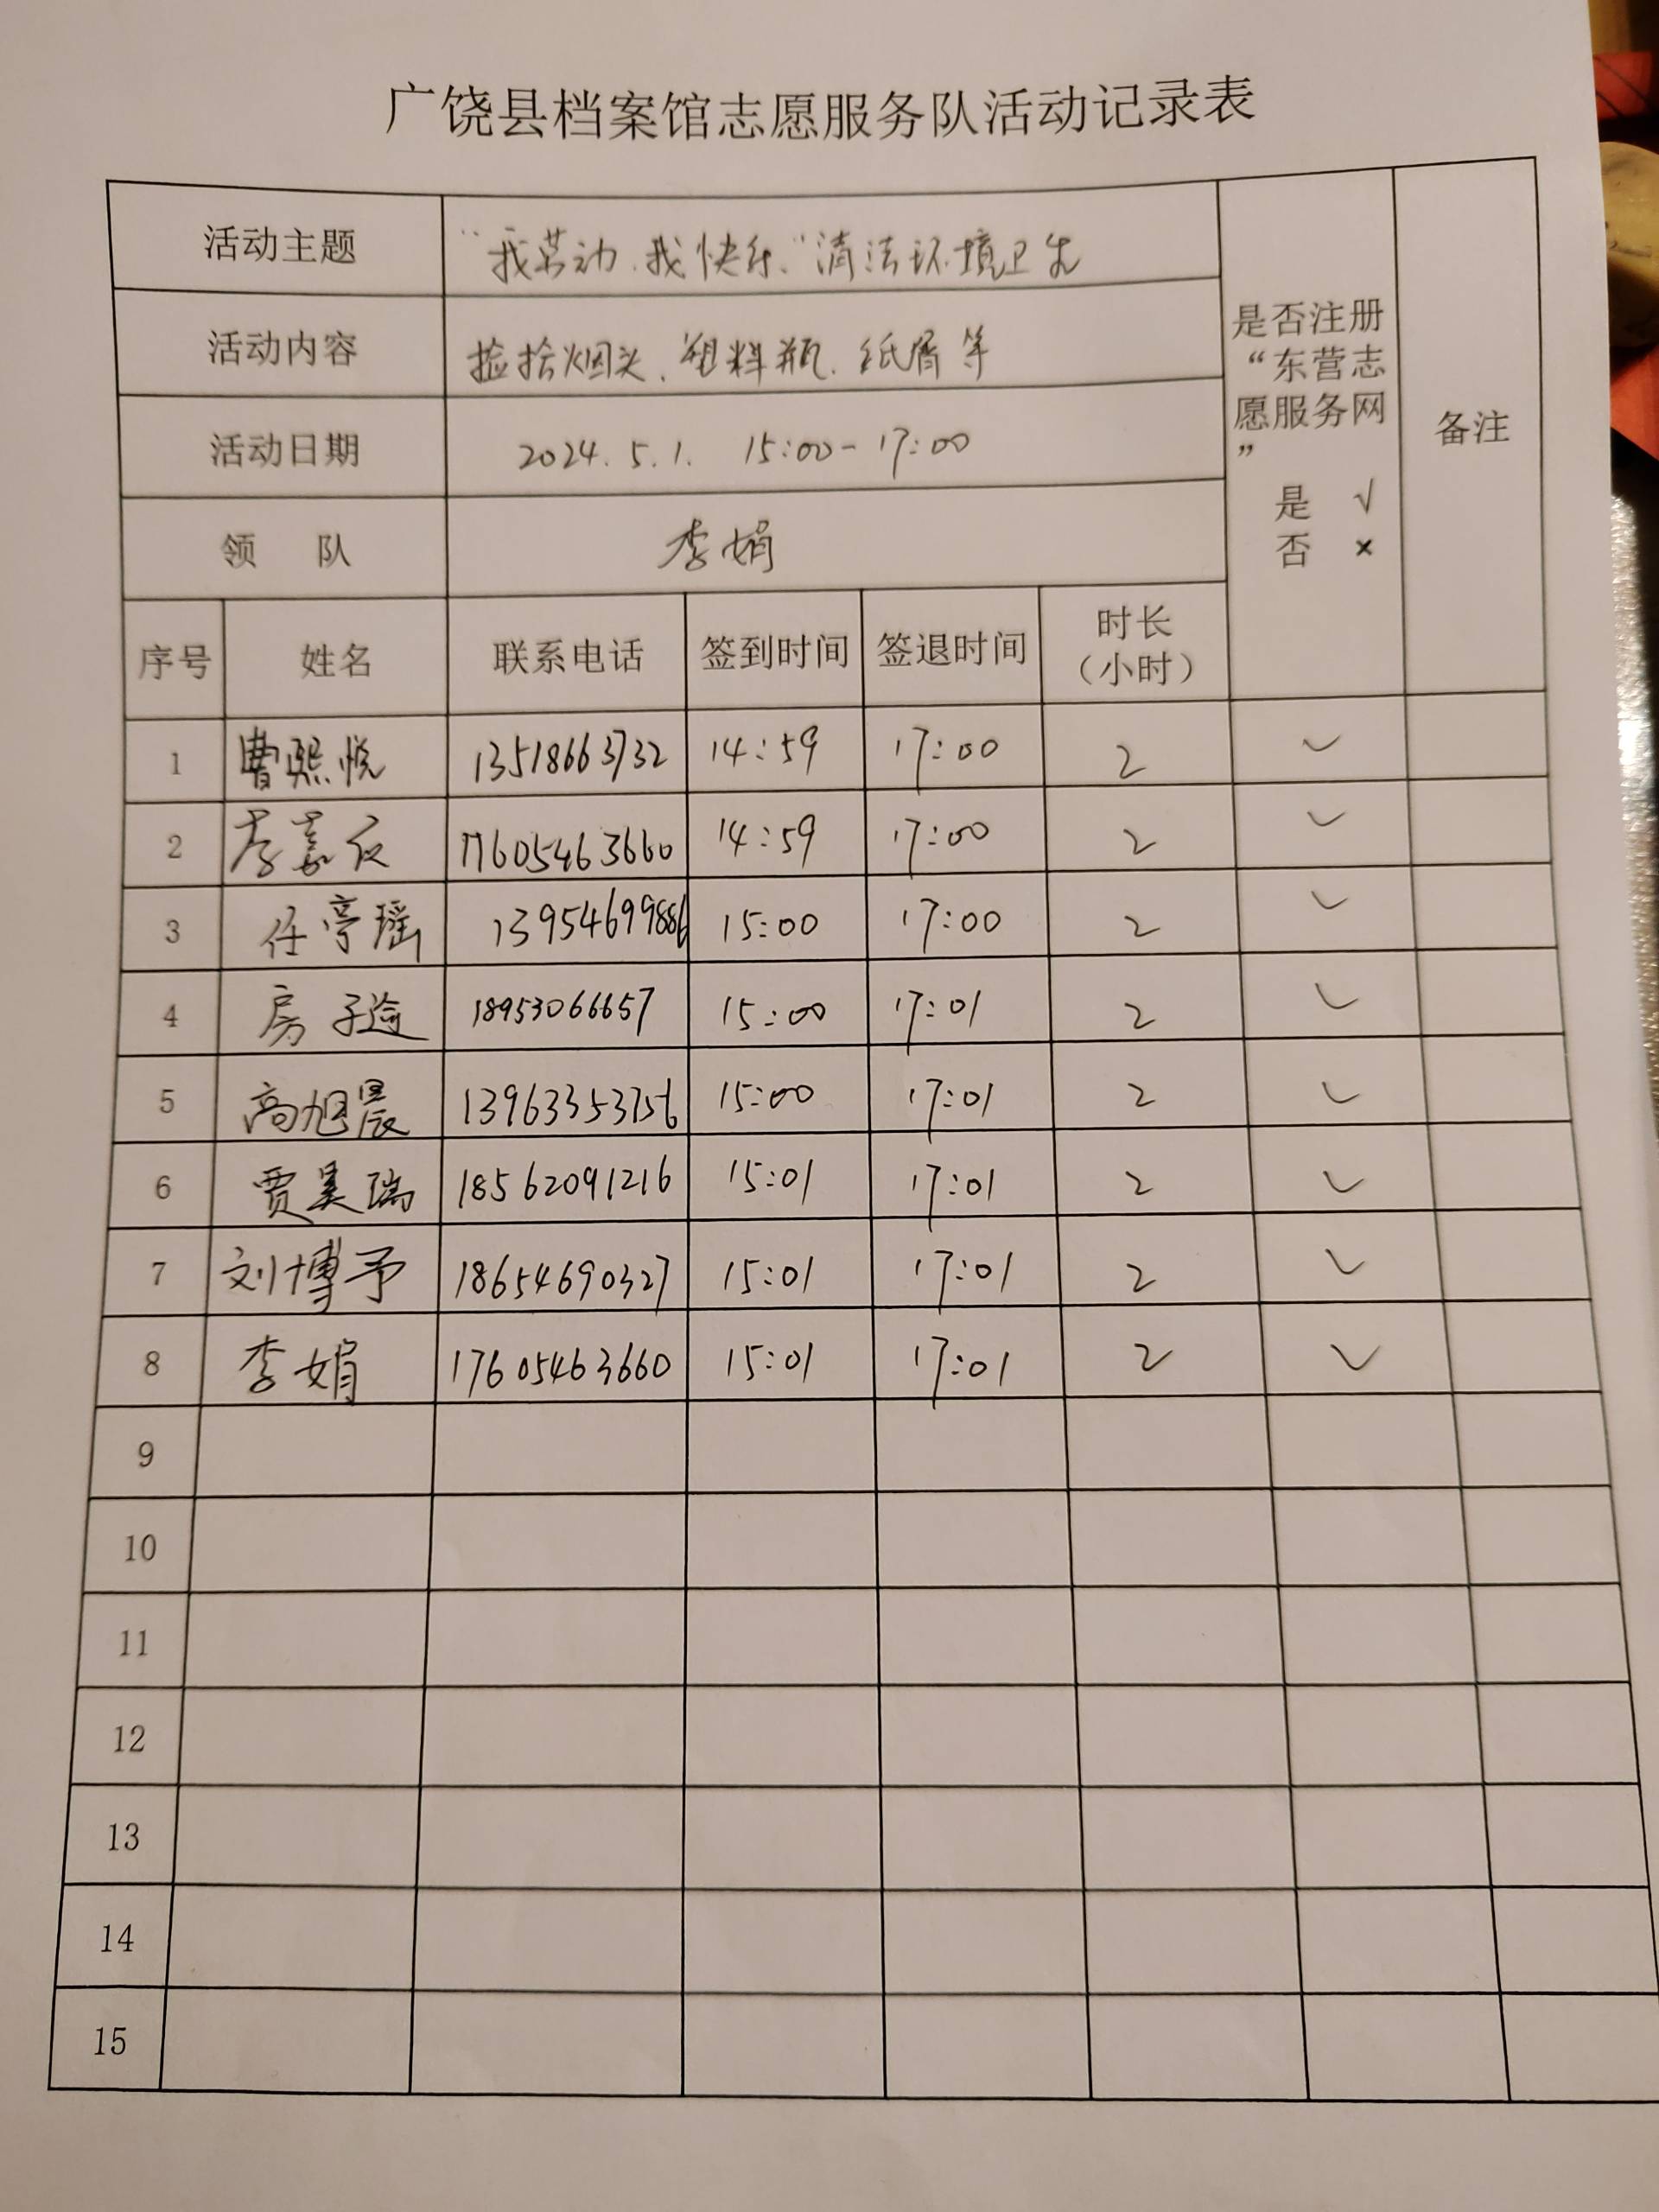 广饶县档案馆志愿服务队活动记录表
活动主题 “我劳动、我快乐、”清洁环境卫生
活动内容 捡拾烟头、塑料瓶、纸屑等
活动日期 2024.5.1. 15:00-17:00
领 队 李娟
是否注册
“东营志
愿服务网
”
是 √
否 ×
备注
序号 姓名 联系电话 签到时间 签退时间 时长
（小时）
1 曹熙悦 13518663732 14:59 17:00 2 ✓
2 李嘉仪 17605463660 14:59 17:00 2 ✓
3 任亭瑶 13954699886 15:00 17:00 2 ✓
4 房子逾 18953066657 15:00 17:01 2 ✓
5 高旭晨 13963353756 15:00 17:01 2 ✓
6 贾昊瑞 18562091216 15:01 17:01 2 ✓
7 刘博予 18654690327 15:01 17:01 2 ✓
8 李娟 17605463660 15:01 17:01 2 ✓
9
10
11
12
13
14
15